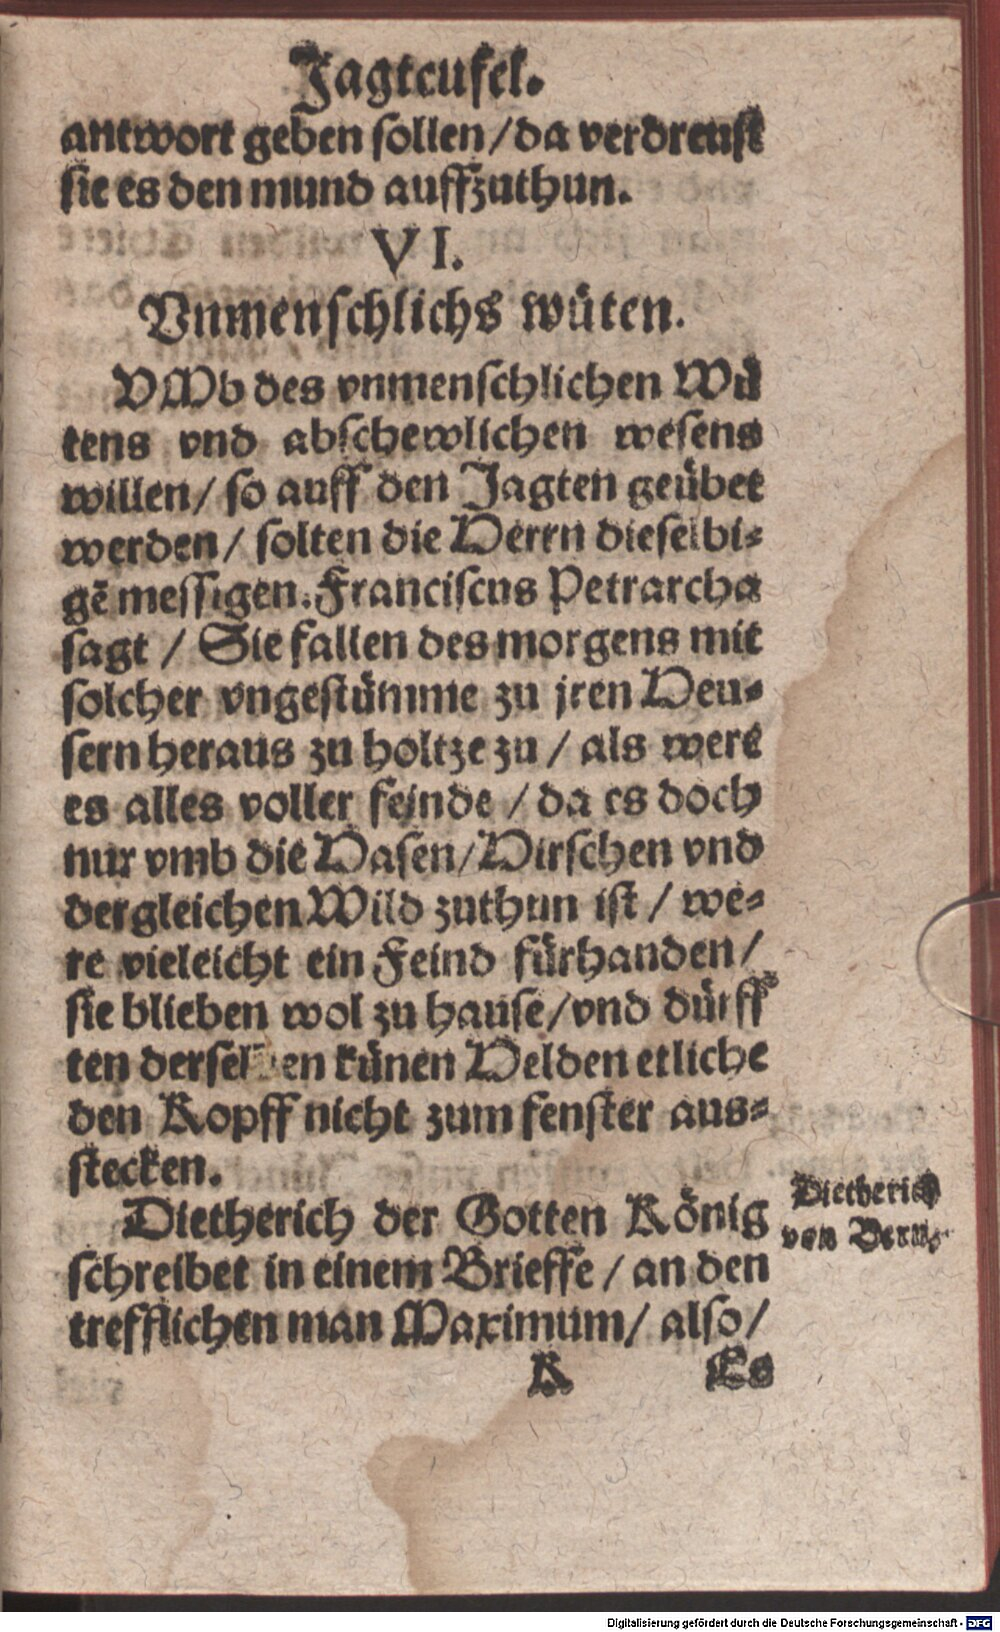 Jagteufel.
antwort geben sollen / da verdreust
sie es den mund auffzuthun.
VI.
Vnmenschlichs wüten.
VMb des vnmenschlichen Wü
tens vnd abschewlichen wesens
willen / so auff den Jagten geübet
werden / solten die Herrn dieselbi-
gē messigen. Franciscus Petrarcha
sagt / Sie fallen des morgens mit
solcher vngestümme zu jren Heu-
sern heraus zu holtze zu / als were
es alles voller feinde / da es doch
nur vmb die Hasen / Hirschen vnd
dergleichen Wild zuthun ist / we-
re vieleicht ein Feind fürhanden /
sie blieben wol zu hause / vnd dürff
ten derselben künen Helden etliche
den Kopff nicht zum fenster aus-
stecken.
Dietherich der Gotten König
schreibet in einem Brieffe / an den
trefflichen man Maximum / also /
Dietherich
von Bern.
K Es
Digitalisierung gefördert durch die Deutsche Forschungsgemeinschaft - DFG